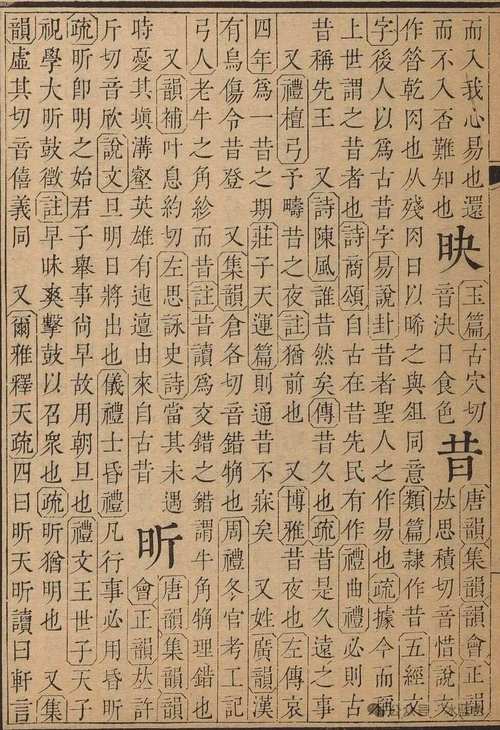 而入我心易也還
而不入否難知也
玉篇古穴切
音決日食色
昔
唐韻集韻韻會正韻
𠀤思積切音惜說文
作㫺乾肉也从殘肉日以晞之與俎同意類篇隸作昔五經文
字後人以爲古昔字易說卦昔者聖人之作易也疏據今而稱
上世謂之昔者也詩商頌自古在昔先民有作禮曲禮必則古
昔稱先王 又詩陳風誰昔然矣傳昔久也疏昔是久遠之事
又禮檀弓予疇昔之夜註猶前也 又博雅昔夜也左傳哀
四年爲一昔之期莊子天運篇則通昔不寐矣 又姓廣韻漢
有烏傷令昔登 又集韻倉各切音錯觕也周禮冬官考工記
弓人老牛之角紾而昔註昔讀爲交錯之錯謂牛角觕理錯也
又韻補叶息約切左思詠史詩當其未遇
時憂其塡溝壑英雄有迍邅由來自古昔
昕
唐韻集韻韻
會正韻𠀤許
斤切音欣說文旦明日將出也儀禮士昏禮凡行事必用昏昕
疏昕卽明之始君子舉事尚早故用朝旦也禮文王世子天子
祝學大昕鼓徵註早昧爽擊鼓以召衆也疏昕猶明也 又集
韻虛其切音僖義同 又爾雅釋天疏四曰昕天昕讀曰軒言